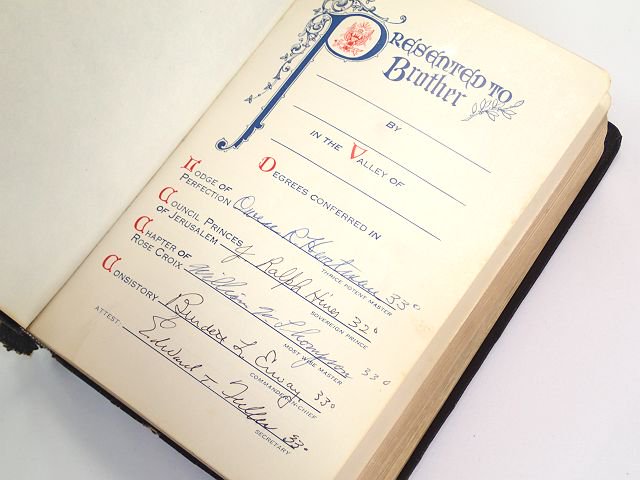 PRESENTED TO
Brother
BY
IN THE VALLEY OF
DEGREES CONFERRED IN
LODGE OF
PERFECTION Owen R 33°
THRICE POTENT MASTER
COUNCIL PRINCES
OF JERUSALEM J Ralph Hines 32°
SOVEREIGN PRINCE
CHAPTER OF
ROSE CROIX William M Thompson 33°
MOST WISE MASTER
CONSISTORY Burdett L Erway 33°
COMMANDER-IN-CHIEF
ATTEST: Edward T. 33°
SECRETARY